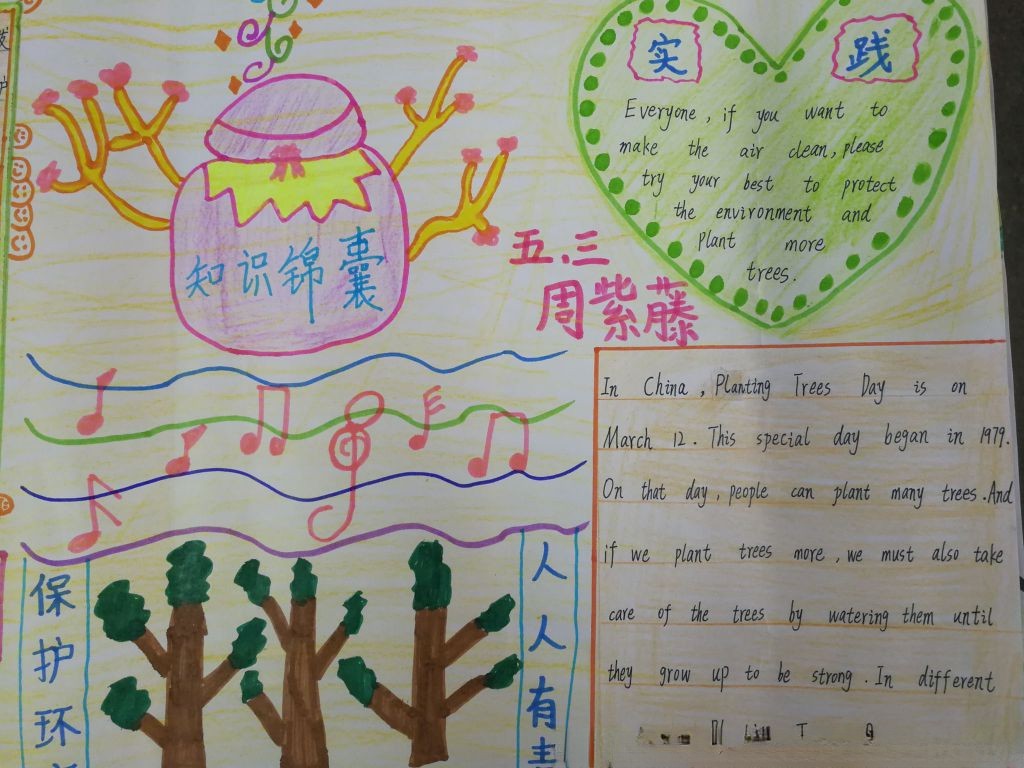 实 践
Everyone, if you want to
make the air clean, please
try your best to protect
the environment and
plant more
trees.
知识锦囊
五.三
周紫藤
In China, Planting Trees Day is on
March 12. This special day began in 1979.
On that day, people can plant many trees. And
if we plant trees more, we must also take
care of the trees by watering them until
they grow up to be strong. In different
保护环
人人有